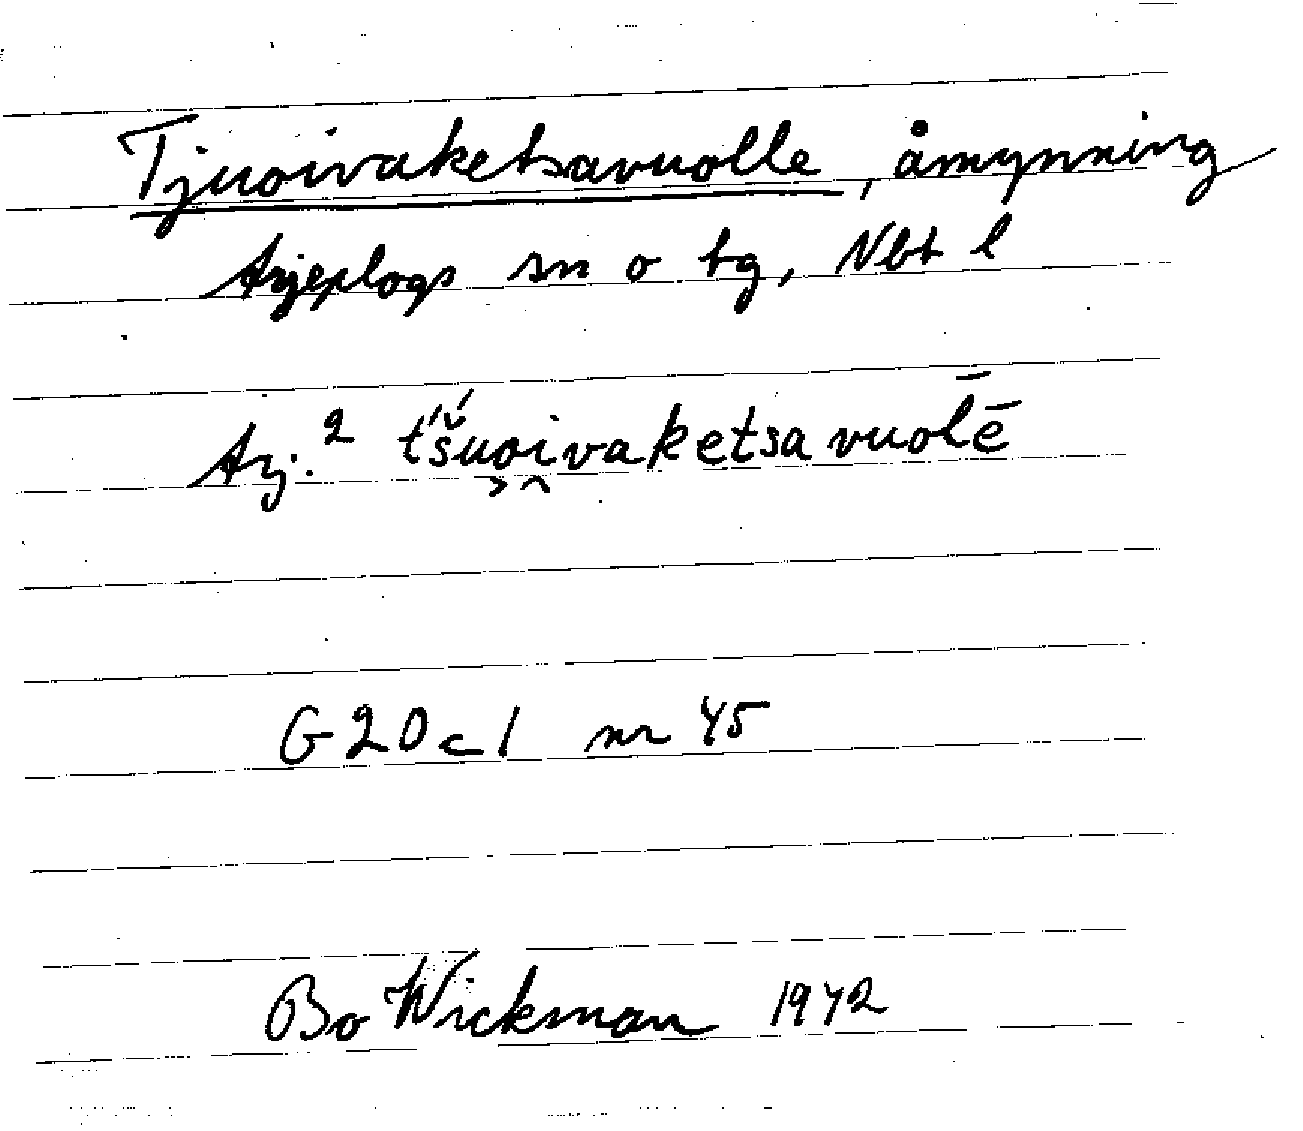 Tjuoivaketsavuolle, åmynning
Arjeplogs sn o tg, Nbt l
Arj.² t́š́uoi̭vaketsavuol̄ē
G20c1 nr 45
Bo Wickman 1942